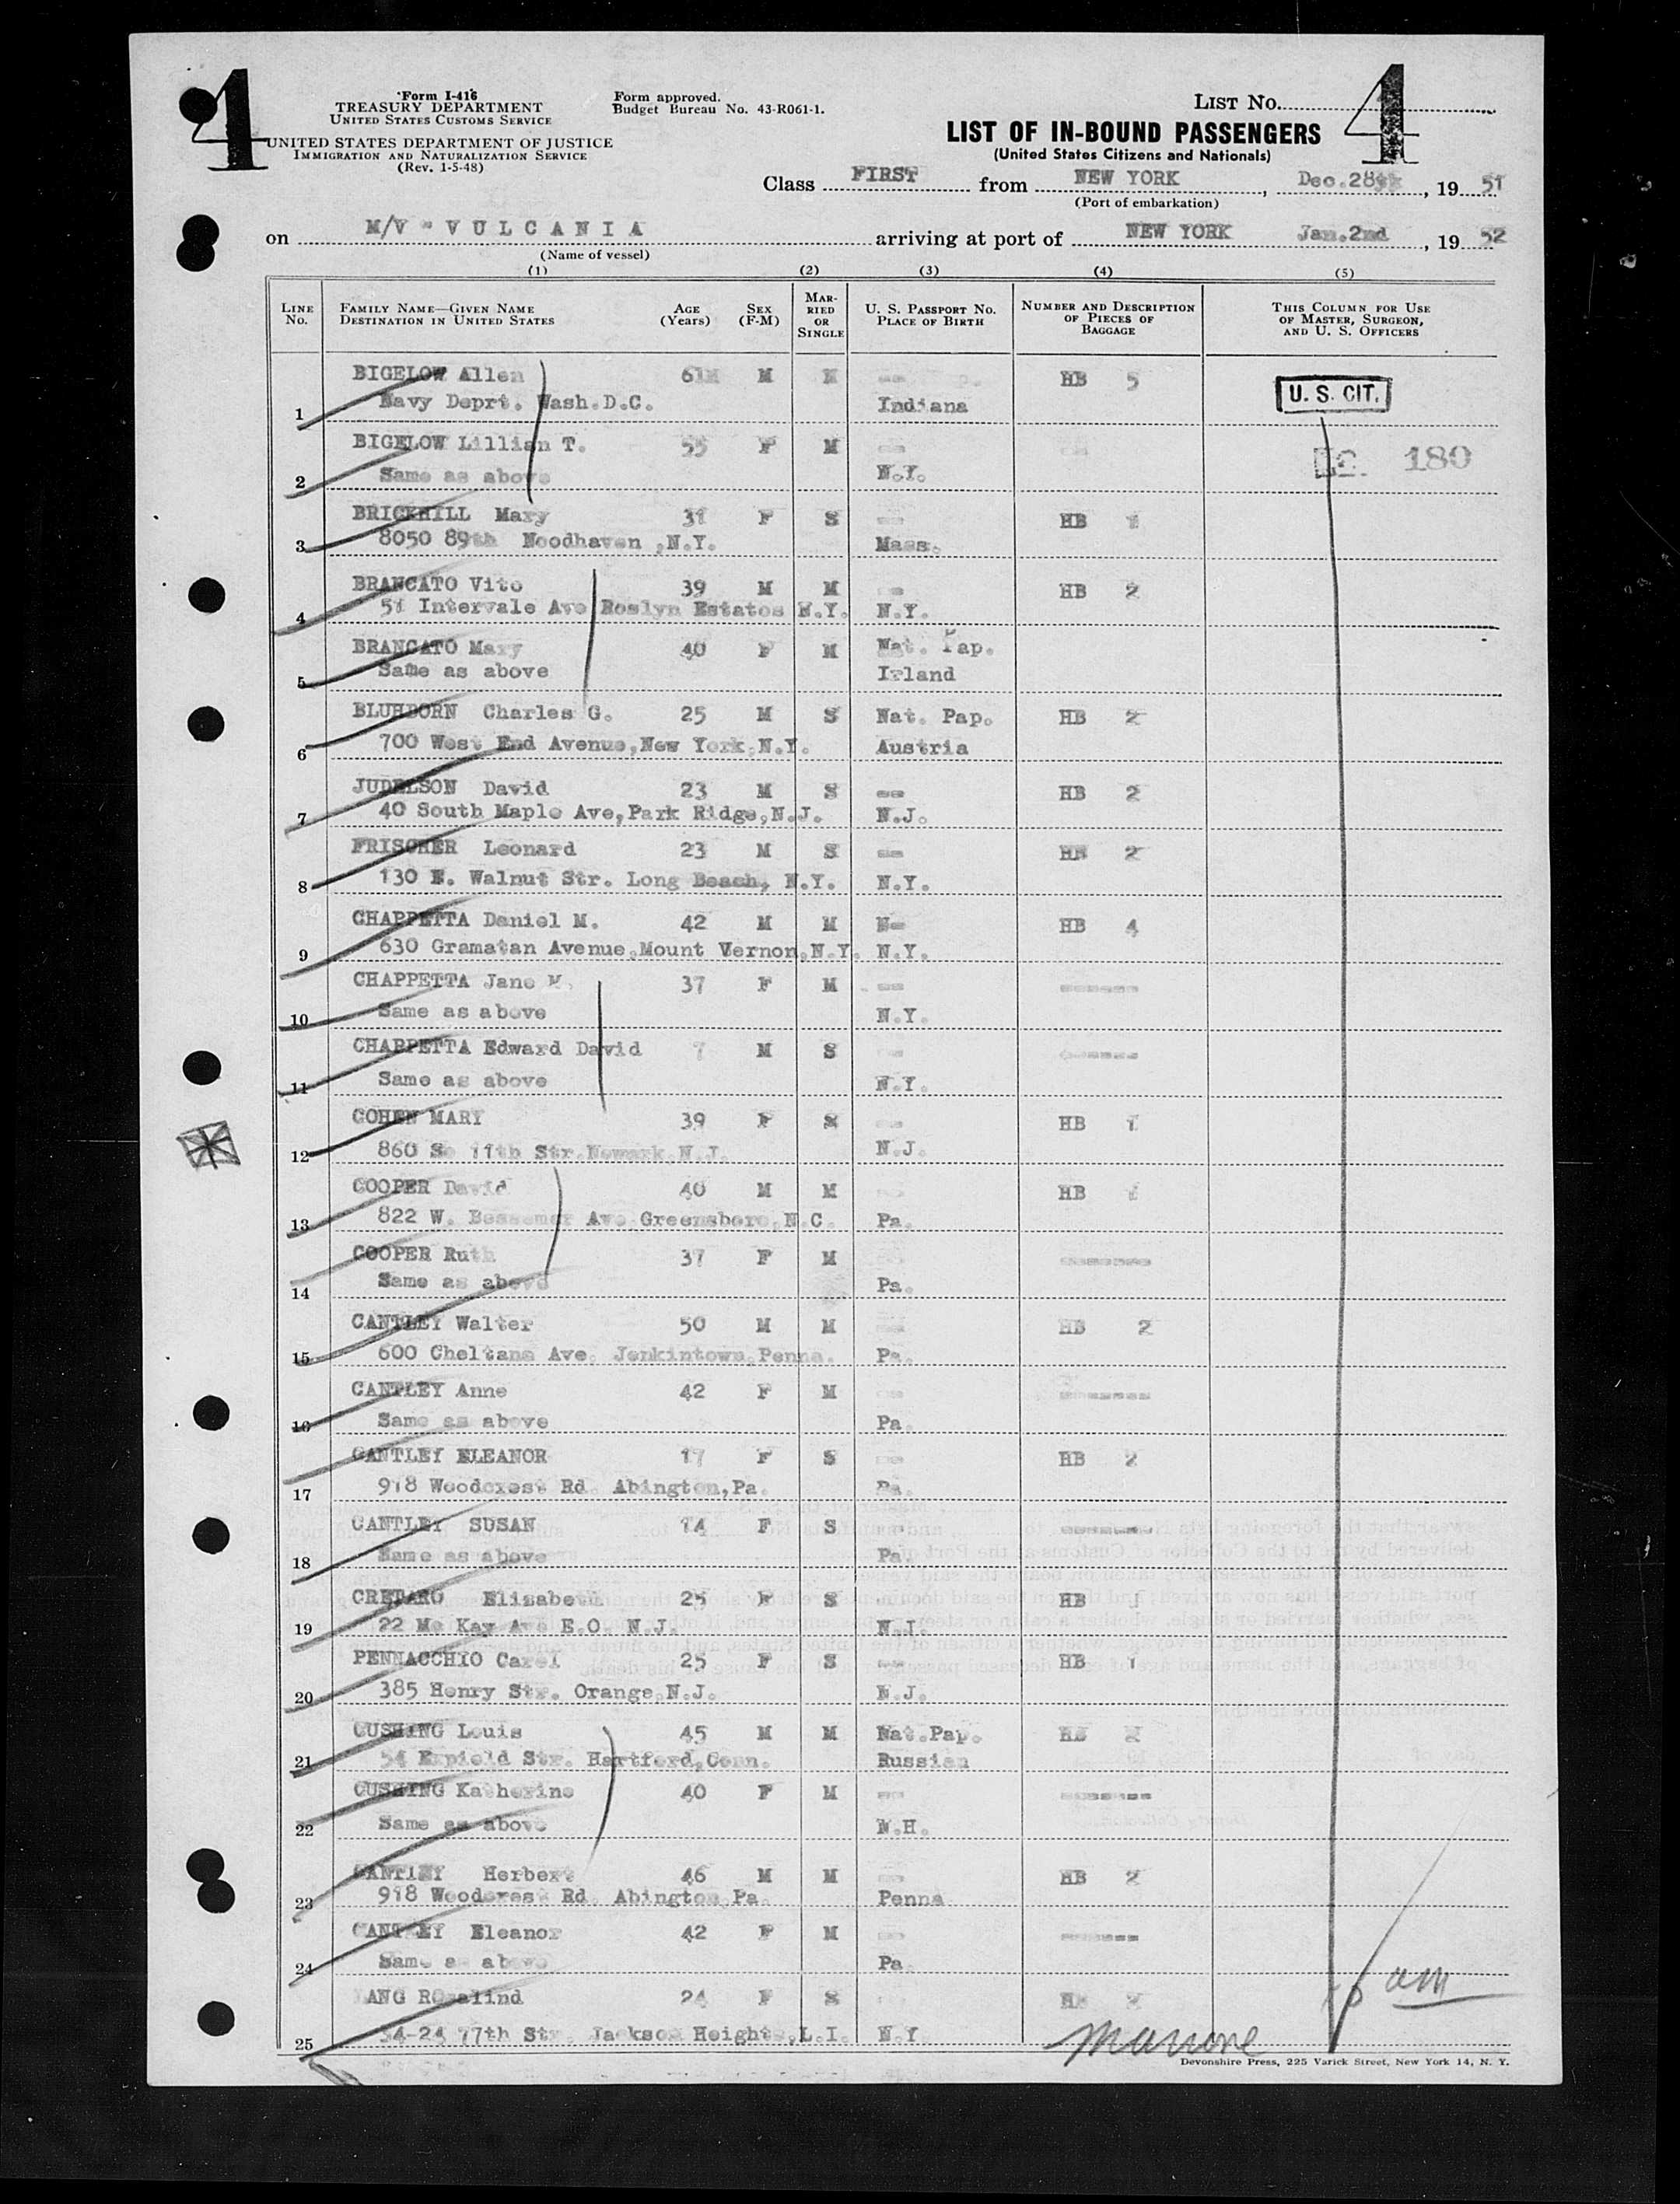 4
Form I-416
TREASURY DEPARTMENT
UNITED STATES CUSTOMS SERVICE
UNITED STATES DEPARTMENT OF JUSTICE
IMMIGRATION AND NATURALIZATION SERVICE
(Rev. 1-5-48)
Form approved.
Budget Bureau No. 43-R061-1.
LIST NO.
4
LIST OF IN-BOUND PASSENGERS
(United States Citizens and Nationals)
Class FIRST from NEW YORK, Dec.28, 19 51
(Port of embarkation)
on M/V "VULCANIA arriving at port of NEW YORK Jan.2nd, 19 52
(Name of vessel)
(1) (2) (3) (4) (5)
LINE NO. FAMILY NAME—GIVEN NAME DESTINATION IN UNITED STATES AGE (Years) SEX (F-M) MARRIED OR SINGLE U. S. PASSPORT NO. PLACE OF BIRTH NUMBER AND DESCRIPTION OF PIECES OF BAGGAGE THIS COLUMN FOR USE OF MASTER, SURGEON, AND U. S. OFFICERS
BIGELOW Allen 61 M M HB 5
U. S. CIT.
1 Navy Deprt. Wash.D.C. Indiana
BIGELOW Lillian T. 55 F M 180
2 Same as above N.Y.
BRICKHILL Mary 31 F S HB 1
3 8050 89th Woodhaven ,N.Y. Mass.
BRANCATO Vito 39 M M HB 2
4 51 Intervale Ave Roslyn Estates N.Y. N.Y.
BRANCATO Mary 40 F M Nat. Pap.
5 Same as above Irland
BLUHDORN Charles G. 25 M S Nat. Pap. HB 2
6 700 West End Avenue,New York,N.Y. Austria
JUDELSON David 23 M S -- HB 2
7 40 South Maple Ave,Park Ridge,N.J. N.J.
FRISCHER Leonard 23 M S -- HB 2
8 130 E. Walnut Str. Long Beach, N.Y. N.Y.
CHAPPETTA Daniel M. 42 M M HB 4
9 630 Gramatan Avenue,Mount Vernon,N.Y. N.Y.
CHAPPETTA Jane M. 37 F M -- ------
10 Same as above N.Y.
CHAPPETTA Edward David 7 M S -- ------
11 Same as above N.Y.
COHEN MARY 39 F S -- HB 1
12 860 So 11th Str.Newark,N.J. N.J.
COOPER David 40 M M HB 1
13 822 W. Bessemer Ave Greensboro,N.C. Pa.
COOPER Ruth 37 F M ------
14 Same as above Pa.
CANTLEY Walter 50 M M HB 2
15 600 Cheltana Ave. Jenkintown,Penna. Pa.
CANTLEY Anne 42 F M -- ------
16 Same as above Pa.
CANTLEY ELEANOR 17 F S -- HB 2
17 918 Woodcrest Rd. Abington,Pa. Pa.
CANTLEY SUSAN 14 F S -- ------
18 Same as above Pa.
CRETARO Elisabeth 25 F S -- HB 1
19 22 Mc Kay Ave E.O. N.J. N.J.
PENNACCHIO Carel 25 F S -- HB 1
20 385 Henry Str. Orange,N.J. N.J.
CUSHING Louis 45 M M Nat.Pap. HB
21 54 Str. Hartford,Conn. Russian
CUSHING Katherine 40 F M -- ------
22 Same as above N.H.
CANTLEY Herbert 46 M M -- HB 2
23 918 Woodcrest Rd. Abington,Pa. Penna
CANTLEY Eleanor 42 F M -- ------
24 Same as above Pa.
LANG Rosalind 24 F S
25 34-24 77th Str. Jackson Heights,L.I. N.Y.
Devonshire Press, 225 Varick Street, New York 14, N. Y.